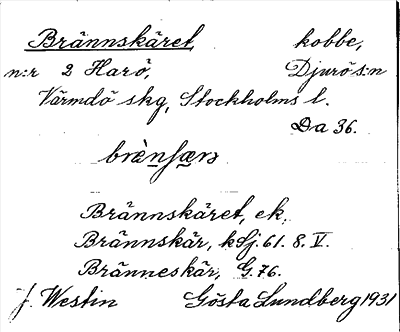 Brännskäret, kobbe,
n:r 2 Harö, Djurö s:n
Värmdö skg, Stockholms l.
Da 36.
brènʃærə
Brännskäret, ek.
Brännskär, kSj. 61. 8. V.
Bränneskär, G. 76.
J. Westin Gösta Lundberg 1931